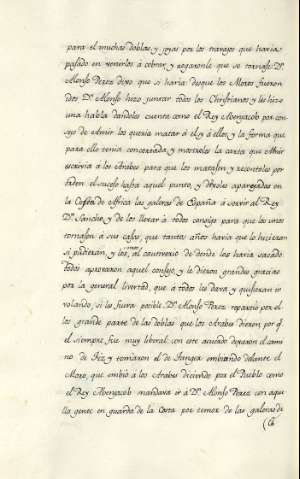 para el muchas doblas, y joyas por los trabajos que havia
pasado en venirlos á cobrar, y rogaronle que se tornase. Dn.
Alonso Perez dixo que si haria: desque los Moros fueron
idos Dn. Alonso hizo juntar todos los Christianos y les hizo
una habla dandoles cuenta como el Rey Abenjacob por con
sejo de Amir los queria matar á el y á ellos, y la forma que
para ello tenia concertada, y mostroles la carta que Amir
escrivia á los Arabes para que los matasen, y recontoles por
estenso el suceso hasta aquel punto, y dixoles aparejadas en
la Costa de Africa las galeras de España á servir al Rey
Dn. Sancho, y de los llevar á todos consigo para que los unos
tornasen á sus casas, que tantos años havia que lo hicieran
si pudieran, y los otros, al contrario de donde los havia sacado
todos aprovaron aquel consejo, y le dieron grandes gracias
por la general livertad, que á todos les dava, y quisieran ir
volando, si les fuera posible. Dn. Alonso Perez repartio por el
los grande parte de las doblas que los Arabes dieron por q.
el siempre fue muy liberal: con este acuerdo dexaron el cami
no de Fez, y tomaron el de Tanger embiando delante el
Moro, que embió á los Arabes diciendo por el Pueblo como
el Rey Abenjacob mandava ir á Dn. Alonso Perez con aque
lla gente en guarda de la Costa por temor de las galeras de